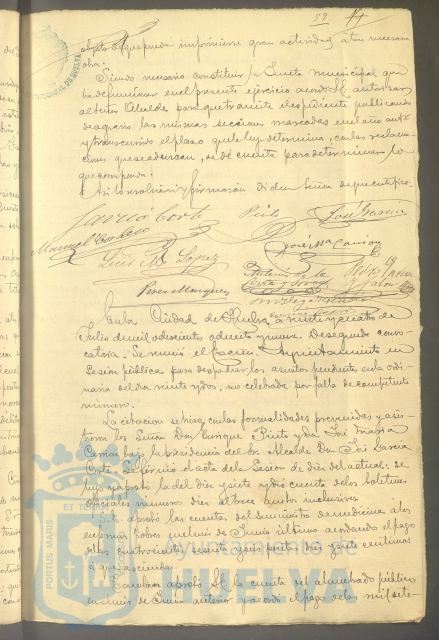 59
objeto de que pueda imprimirse gran actividad a tan necesaria
obra.
Siendo necesario constituir la Junta municipal que
ha de funcionar en el presente ejercicio acordó S.E. autorizar
al Señor Alcalde para que tramite el expediente publicando
las mismas secciones marcadas en el año
y transcurrido el plazo que la ley determina, con las reclama-
ciones que se aduzcan, se dé cuenta para determinar lo
que corresponda.
Así lo resolvieron y firmaron dichos Señores de que certifico.
García Corte
Pinto
José García
Manuel
José Mª Carrión
Luis M. López
Antonio de la
Perez Marquez
En la Ciudad de Huelva a veinte y cuatro de
Julio de mil ochocientos ochenta y nueve. De segunda convo-
catoria. Se reunió el Excmo. Ayuntamiento en
Sesión pública para despachar los asuntos pendientes en la ordi-
naria del día veinte y dos, no celebrada por falta de competente
número.
La citación se hizo con las formalidades prevenidas y asis-
tieron los Señores Don Enrique Pinto y Don José María
Carrión bajo la presidencia del Sr. Alcalde Don José García
Corte. Se leyó el acta de la Sesión de diez del actual: se
leyó y aprobó la del diez y siete y dió cuenta de los boletines
oficiales números diez al trece ambos inclusives.
Se aprobó la cuenta del suministro de medicina a los
enfermos pobres en el mes de Junio último acordando el pago
de las cuatrocientas sesenta y seis pesetas diez y siete céntimos
a que asciende.
También aprobó S.E. la cuenta del alumbrado público
en el mes de Junio anterior y acordó el pago de las mil siete-
PORTUS MARIS
ET TE
Ayuntamiento de
HUELVA